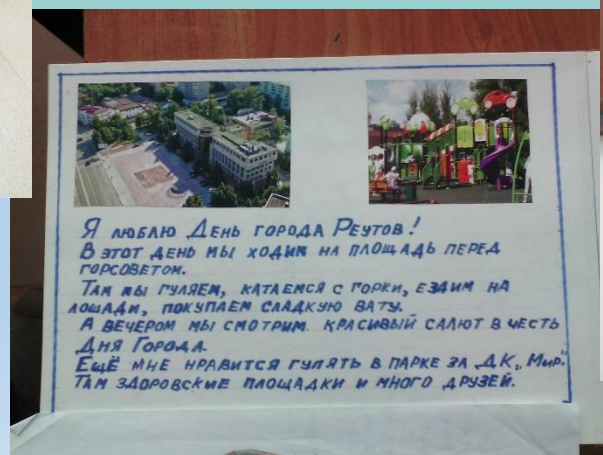 Я люблю День города Реутов!
В этот день мы ходим на площадь перед
горсоветом.
Там мы гуляем, катаемся с горки, ездим на
лошади, покупаем сладкую вату.
А вечером мы смотрим красивый салют в честь
Дня Города.
Ещё мне нравится гулять в парке за ДК „Мир".
Там здоровские площадки и много друзей.